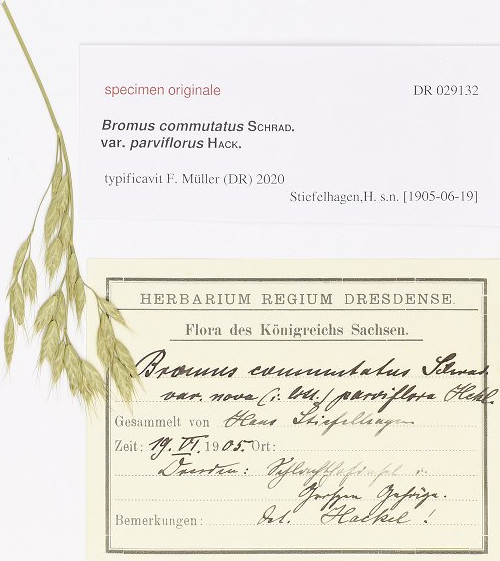 specimen originale DR 029132
Bromus commutatus SCHRAD.
var. parviflorus HACK.
typificavit F. Müller (DR) 2020
Stiefelhagen,H. s.n. [1905-06-19]
HERBARIUM REGIUM DRESDENSE.
Flora des Königreichs Sachsen.
Bromus commutatus Schrad.
var. nova (in litt.) parviflora Hckl.
Gesammelt von Hans Stiefelhagen
Zeit: 19. VI. 1905. Ort:
Dresden: Schlachthofinsel
Großen Gehege.
Bemerkungen: det. Hackel!